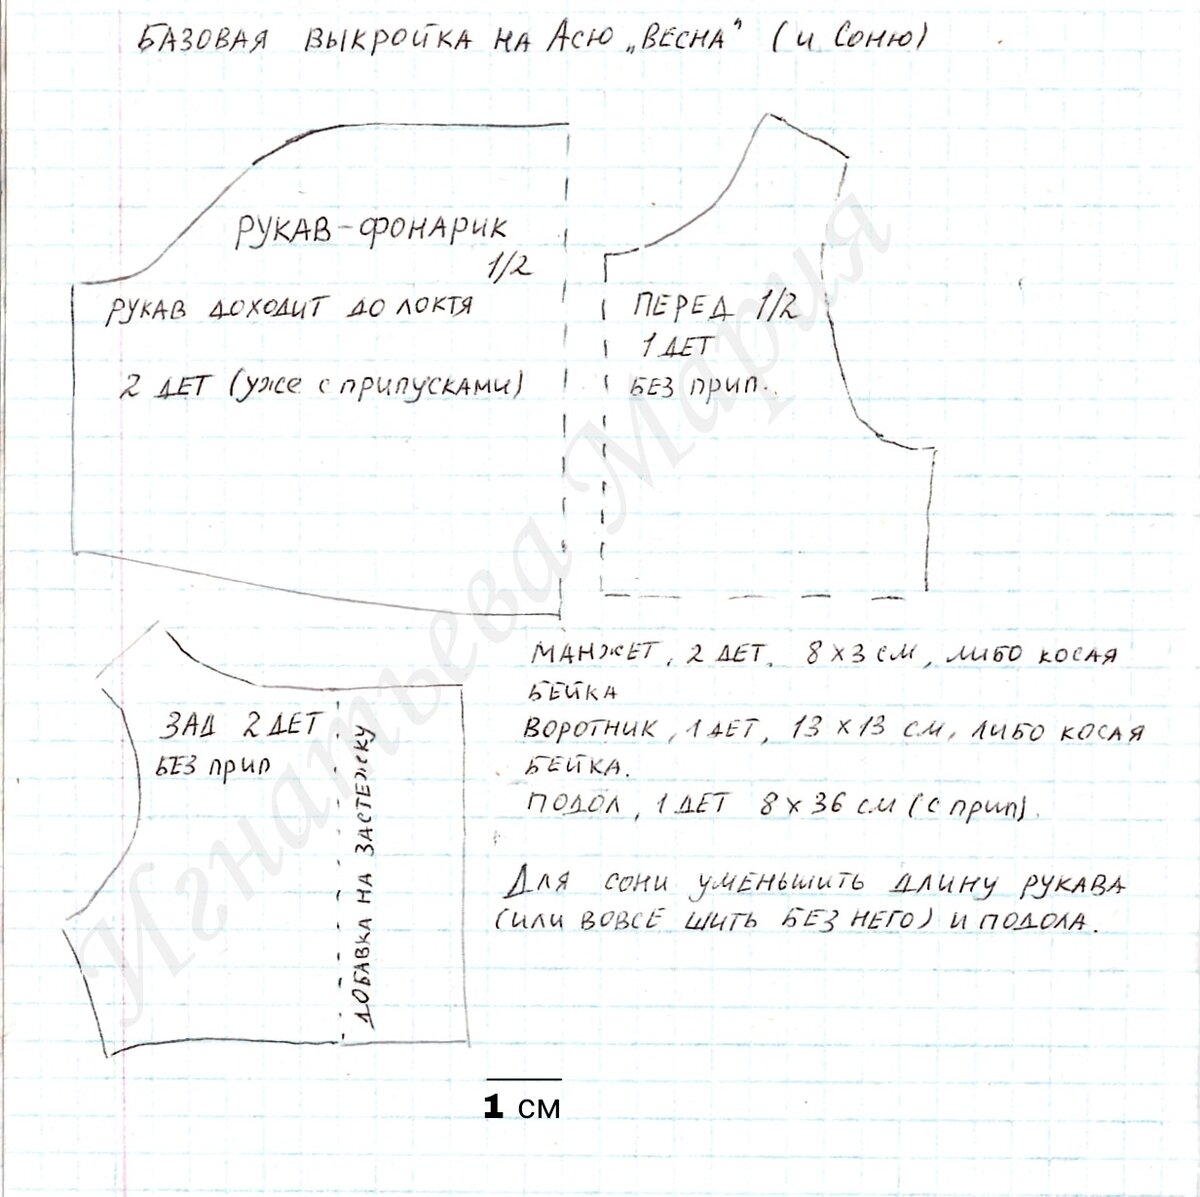 БАЗОВАЯ ВЫКРОЙКА НА АСЮ „ВЕСНА" (и СОНЮ)
РУКАВ-ФОНАРИК
1/2
РУКАВ ДОХОДИТ ДО ЛОКТЯ
2 ДЕТ (УЖЕ С ПРИПУСКАМИ)
ПЕРЕД 1/2
1 ДЕТ
БЕЗ ПРИП.
ЗАД 2 ДЕТ
БЕЗ ПРИП
ДОБАВКА НА ЗАСТЕЖКУ
МАНЖЕТ, 2 ДЕТ, 8 х 3 СМ, ЛИБО КОСАЯ
БЕЙКА
ВОРОТНИК, 1 ДЕТ, 13 х 13 СМ, ЛИБО КОСАЯ
БЕЙКА.
ПОДОЛ, 1 ДЕТ 8 х 36 СМ (С ПРИП).
ДЛЯ СОНИ УМЕНЬШИТЬ ДЛИНУ РУКАВА
(ИЛИ ВОВСЕ ШИТЬ БЕЗ НЕГО) И ПОДОЛА.
1 см
Игнатьева Мария